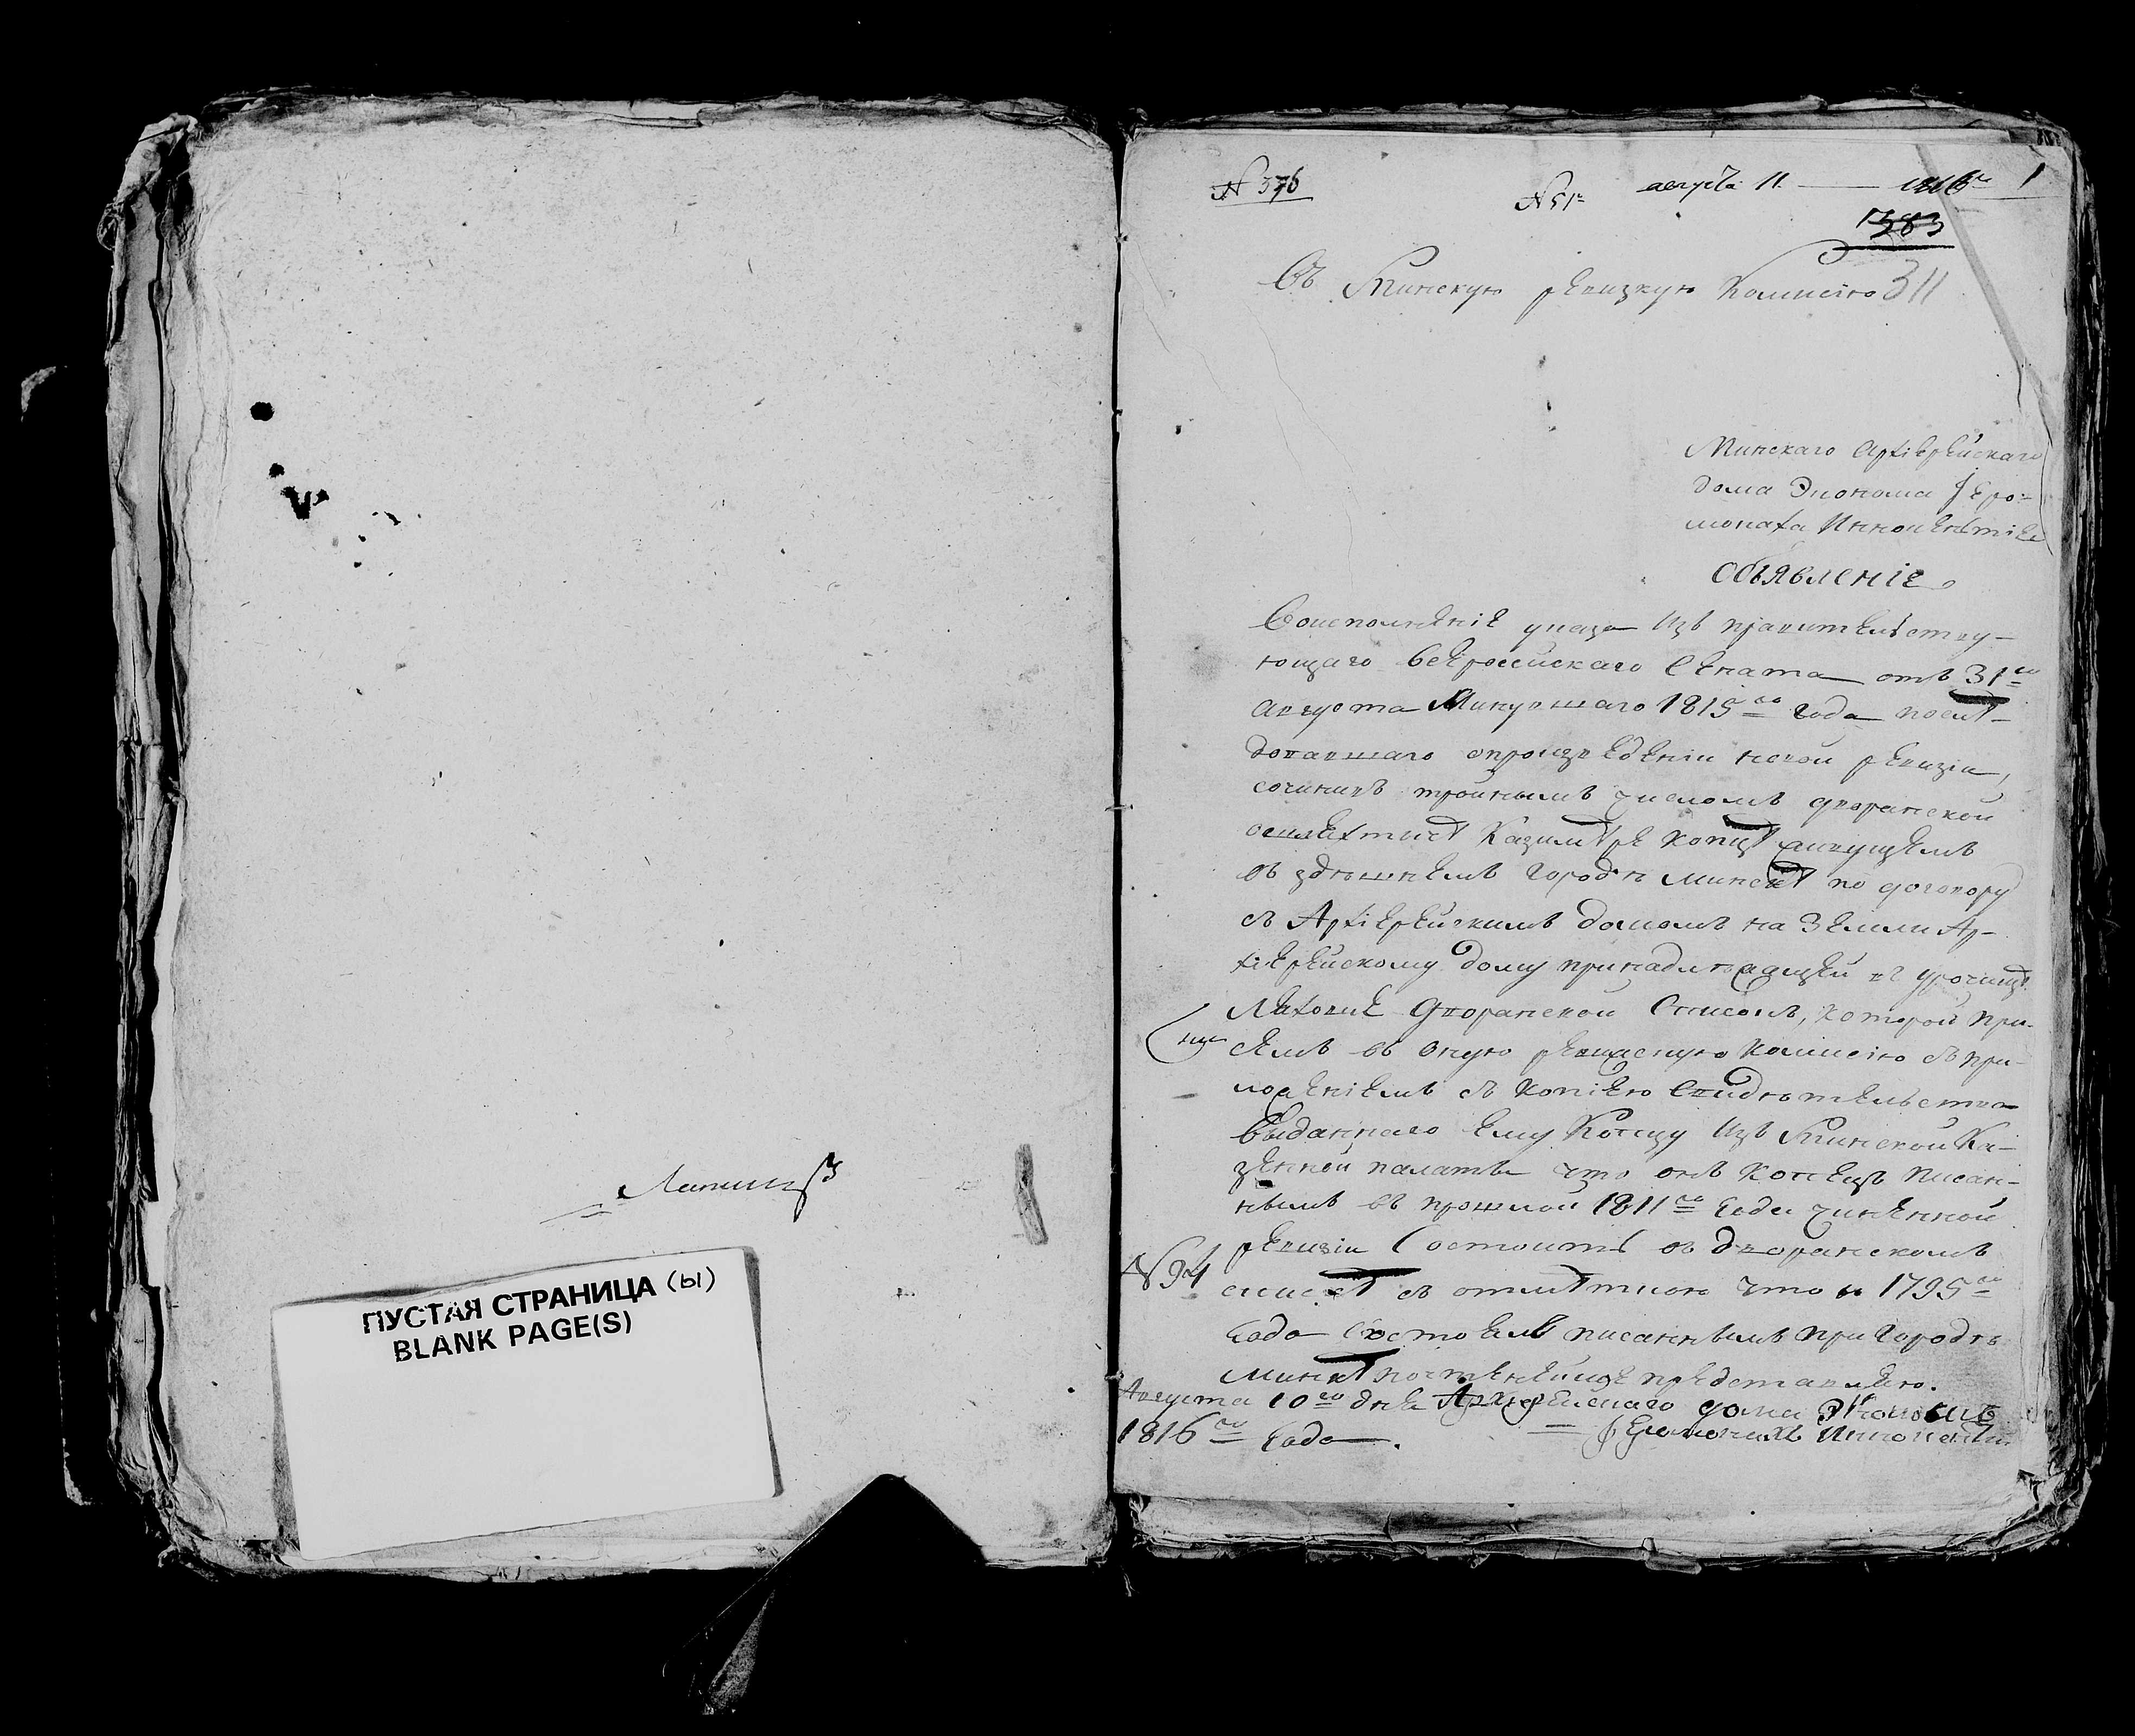 ПУСТАЯ СТРАНИЦА (ы)
BLANK PAGE(S)
№ 376
№ 51
августа 11. 1816го 1
1383
Въ Минскую ревизкую Комисію 311
Минскаго Архіерейскаго
дома Эконома Іеро-
монаха Иннокентіе
Объявленіе
Воисполненіе указа Изъ правительству-
ющаго всероссійскаго Сената отъ 31го
Августа Минувшаго 1815го года послѣ-
довавшаго опроизведеніи новой ревизіи,
сочинивъ тройнымъ числомъ дворянской
ошляхтисѣ Казимѣре Копцѣ живущемъ
въ здѣшнемъ городѣ Минскѣ по договору
съ Архіерейскимъ домомъ на Земли Ар-
хіерейскому дому принадлѣжащей въ урочищѣ
Ляховке Дворянской Списокъ, которой при
семъ въ оную ревижскую Комисію съ при-
ложеніемъ съ Копіею Свидѣтельства
Выданнаго Ему Копцу Изъ Минской Ка-
зенной палаты что онъ Копецъ писан-
нымъ въ прошлой 1811го Года чиненной
ревизіи Состоитъ въ дворянскомъ
№ 94
списке съ отмѣткою что и 1795го
Года Состоялъ писаннымъ при городѣ
Минскѣ почтеннейше представляю.
Августа 10го дня Архіерейскаго дома Экономъ
1816го Года. Іеромонахъ Иннокентій